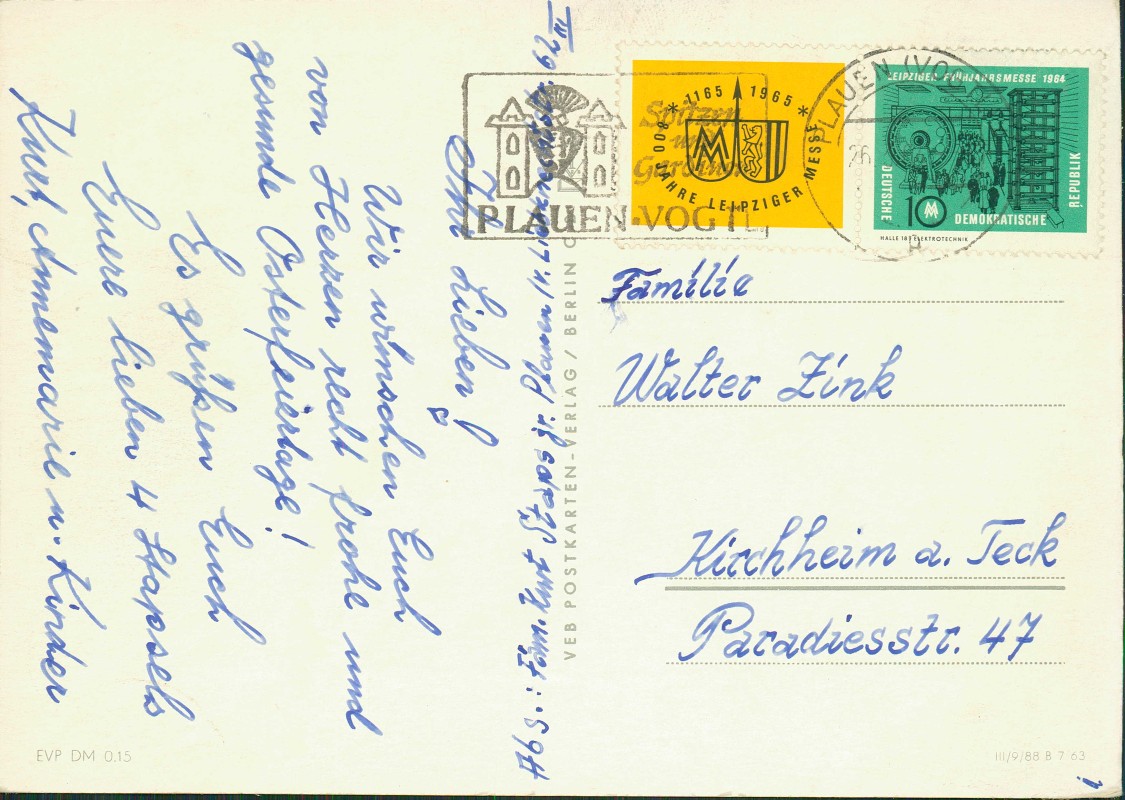 Ihr Lieben!
Wir wünschen Euch
von Herzen recht frohe und
gesunde Osterfeiertage!
Es grüßen Euch
Euere lieben 4 Stapsels
Kurt, Annemarie u. Kinder
VEB POSTKARTEN-VERLAG / BERLIN C
Plauen/V.
Fam. Kurt
29 III
PLAUEN-VOGTL.
Spitzen
und
Gardinen
1165 * 1965 *
800 JAHRE LEIPZIGER MESSE
PLAUEN (VO
26
LEIPZIGER FRÜHJAHRSMESSE 1964
DEUTSCHE
DEMOKRATISCHE
REPUBLIK
10
HALLE 18 ELEKTROTECHNIK
Familie
Walter Zink
Kirchheim a. Teck
Paradiesstr. 47
EVP DM 0.15
III/9/88 B 7 63